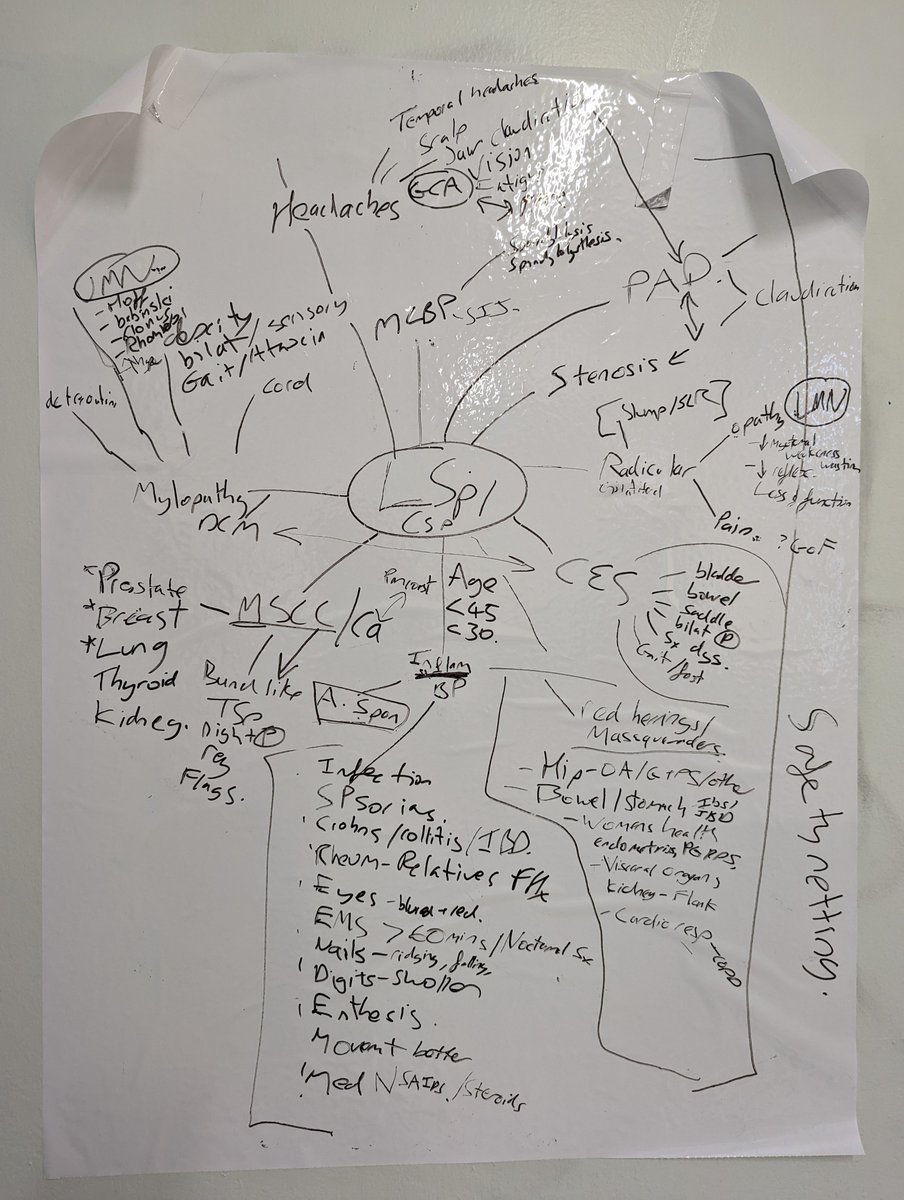 Temporal headaches
Scalp
Jaw claudication
Vision
GCA
Headaches
UMN
- Hoff
- babinski
- Clonus
- Rhomberg
bilat/sensory
Gait/Ataxia
Cord
Mylopathy
DCM
MLBP
SIJ
PAD
Claudication
Stenosis
[Slump/SLR]
Radicular
opathy
LMN
- ↓ myotomal
weakness
- ↓ reflex
Loss of function
Pain
? GoF
LSp/
CSp
CES
- bladder
- bowel
- saddle
- bilat P
- Sx dys.
Gait/foot
MSCC/Ca
*Prostate
*Breast
*Lung
Thyroid
Kidney.
Band like
TSp
Night P
red
Flags.
Age
<45
<30.
Inflam
BP
A. Spon
Infection
SPsorias
Crohns/collitis/IBD.
Rheum-Relatives FHx
Eyes - blured + red.
EMS >60mins/Nocturnal Sx
Nails - ridging, falling,
Digits - Swollen
Enthesis.
Movemt better
Med NSAIDs/Steroids
red herrings/
Massquarders.
- Hip - OA/GTPS/othe
- Bowel/Stomach IBS/
IBD
- Womens health
- Visceral organs
Kidney - Flank
- Cardio resp - COPD
Safety netting.